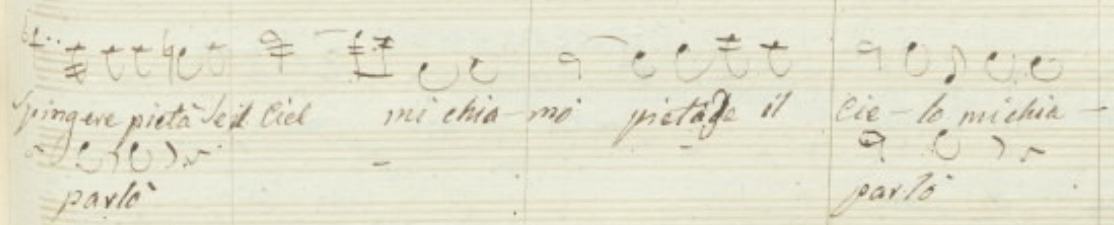 Spingere pietà se il Ciel mi chia-mò pietà se il Cie-lo mi chia-
parlò parlò